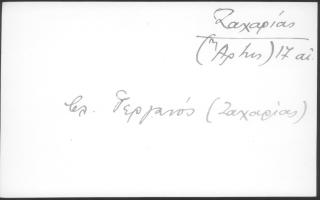 Ζαχαρίας
(ἢ Άρτης) 17 αἰ.
βλ. Γεργανός (Ζαχαρίας)